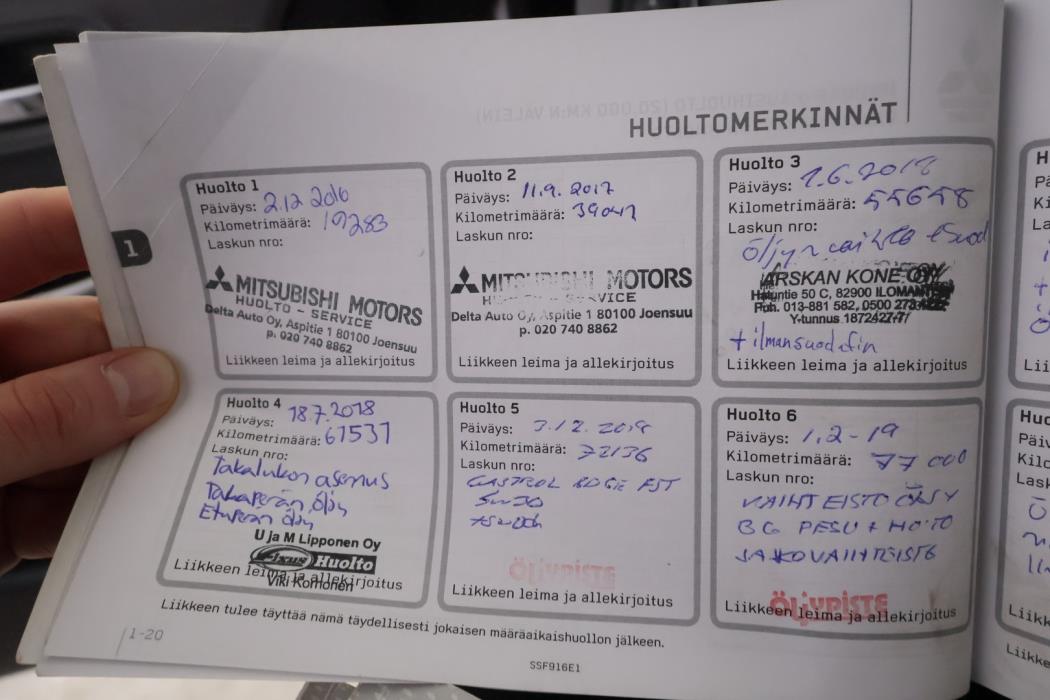 HUOLTOMERKINNÄT
Huolto 1
Päiväys: 2.12 2016
Kilometrimäärä: 19283
Laskun nro:
MITSUBISHI MOTORS
HUOLTO - SERVICE
Delta Auto Oy, Aspitie 1 80100 Joensuu
p. 020 740 8862
Liikkeen leima ja allekirjoitus
Huolto 2
Päiväys: 11.9. 2017
Kilometrimäärä: 39041
Laskun nro:
MITSUBISHI MOTORS
HUOLTO - SERVICE
Delta Auto Oy, Aspitie 1 80100 Joensuu
p. 020 740 8862
Liikkeen leima ja allekirjoitus
Huolto 3
Päiväys: 1.6.2018
Kilometrimäärä: 55658
Laskun nro:
öljyn vaihto
ARSKAN KONE OY
50 C, 82900 ILOMANTSI
Puh. 013-881 582, 0500
Y-tunnus 1872427-7
+ ilmansuodatin
Liikkeen leima ja allekirjoitus
Huolto 4
Päiväys: 18.7.2018
Kilometrimäärä: 61531
Laskun nro:
Takalukon asennus
Takaperän öljy
Etuperän öljy
U ja M Lipponen Oy
Fixus Huolto
Viki Korhonen
Liikkeen leima ja allekirjoitus
Huolto 5
Päiväys: 3.12. 2018
Kilometrimäärä: 72136
Laskun nro:
CASTROL EDGE FST
5W30
ÖLJYPISTE
Liikkeen leima ja allekirjoitus
Huolto 6
Päiväys: 1.2-19
Kilometrimäärä: 77000
Laskun nro:
VAIHTEISTO ÖLJY
BG PESU + HOITO
JAKOVAIHTEISTO
ÖLJYPISTE
Liikkeen leima ja allekirjoitus
Liikkeen tulee täyttää nämä täydellisesti jokaisen määräaikaishuollon jälkeen.
1-20
SSF916E1
1